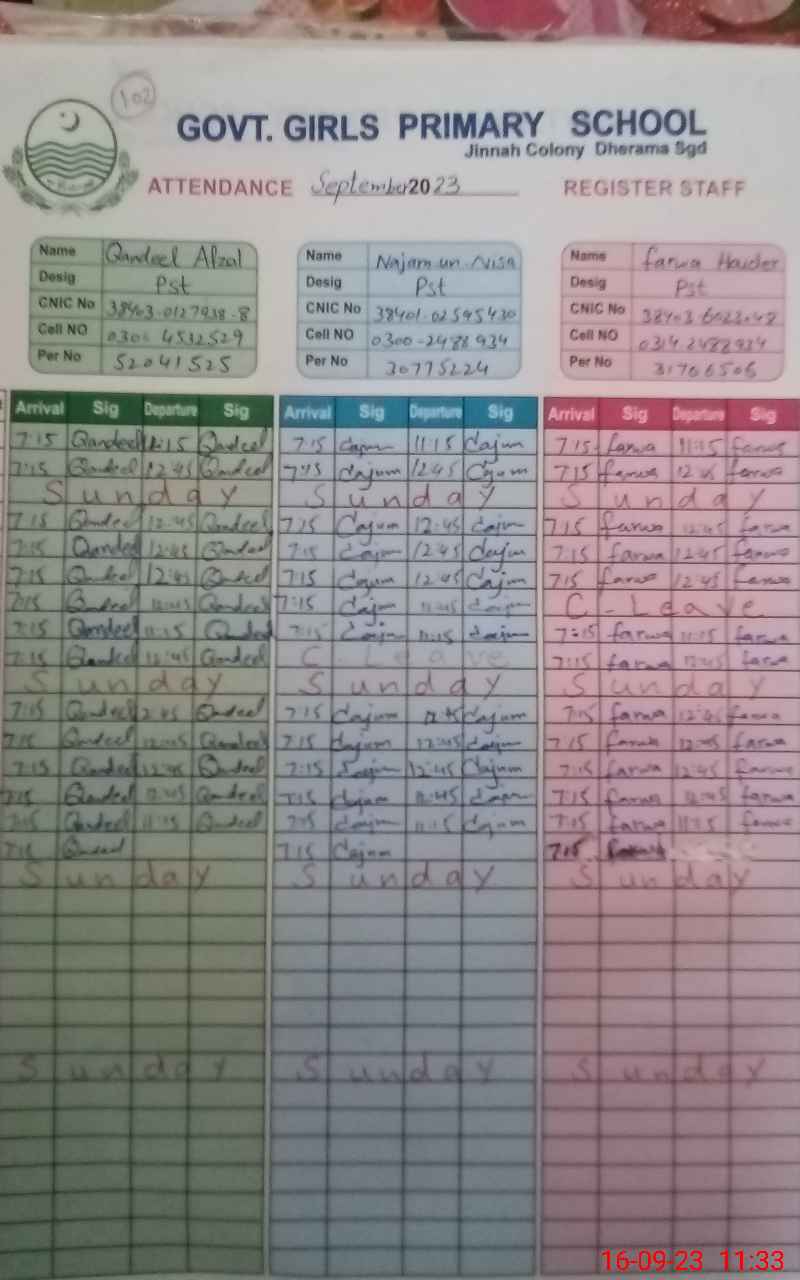 102
GOVT. GIRLS PRIMARY SCHOOL
Jinnah Colony Dherama Sgd
ATTENDANCE September 2023 REGISTER STAFF
Name Qandeel Afzal Name Najam un Nisa Name farwa Haider
Desig Pst Desig Pst Desig Pst
CNIC No 38403-0127938-8 CNIC No 38401-02595430 CNIC No
Cell NO Cell NO 0300-2488934 Cell NO 0314 2488934
Per No 52041525 Per No 30775224 Per No 31706506
Arrival Sig Departure Sig Arrival Sig Departure Sig Arrival Sig Departure Sig
7:15 Qandeel 11:15 Qandeel 7:15 Cajum 11:15 Cajum 7:15 farwa 11:15 farwa
7:15 Qandeel 12:45 Qandeel 7:15 Cajum 12:45 Cajum 7:15 farwa 12:45 farwa
Sunday Sunday Sunday
7:15 Qandeel 12:45 Qandeel 7:15 Cajum 12:45 Cajum 7:15 farwa 12:45 farwa
7:15 Qandeel 12:45 Qandeel 7:15 Cajum 12:45 Cajum 7:15 farwa 12:45 farwa
7:15 Qandeel 12:45 Qandeel 7:15 Cajum 12:45 Cajum 7:15 farwa 12:45 farwa
7:15 Qandeel Qandeel 7:15 Cajum Cajum C-Leave
7:15 Qandeel 11:15 Qandeel 7:15 Cajum 11:15 Cajum 7:15 farwa 11:15 farwa
7:15 Qandeel 12:45 Qandeel C. Leave 7:15 farwa 12:45 farwa
Sunday Sunday Sunday
7:15 Qandeel 12:45 Qandeel 7:15 Cajum 12:45 Cajum 7:15 farwa 12:45 farwa
7:15 Qandeel 12:45 Qandeel 7:15 Cajum 12:45 Cajum 7:15 farwa 12:45 farwa
7:15 Qandeel 12:45 Qandeel 7:15 Cajum 12:45 Cajum 7:15 farwa 12:45 farwa
7:15 Qandeel 12:45 Qandeel 7:15 Cajum 12:45 Cajum 7:15 farwa 12:45 farwa
7:15 Qandeel 11:15 Qandeel 7:15 Cajum 11:15 Cajum 7:15 farwa 11:15 farwa
7:15 Qandeel 7:15 Cajum 7:15 farwa
Sunday Sunday Sunday
Sunday Sunday Sunday
16-09-23 11:33